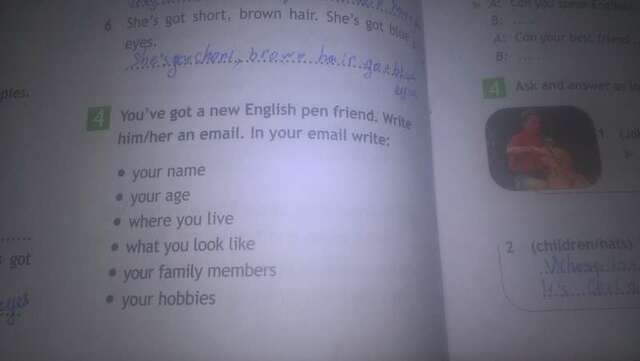 6 She's got short, brown hair. She's got blue
eyes.
She's got short, brown hair got blue
eyes
4 You've got a new English pen friend. Write
him/her an email. In your email write:
• your name
• your age
• where you live
• what you look like
• your family members
• your hobbies
ples.
got
eyes
A: Can you
B: ......
A: Can your best friend
B: ......
4 Ask and answer
1
2 (children/hats)
It's